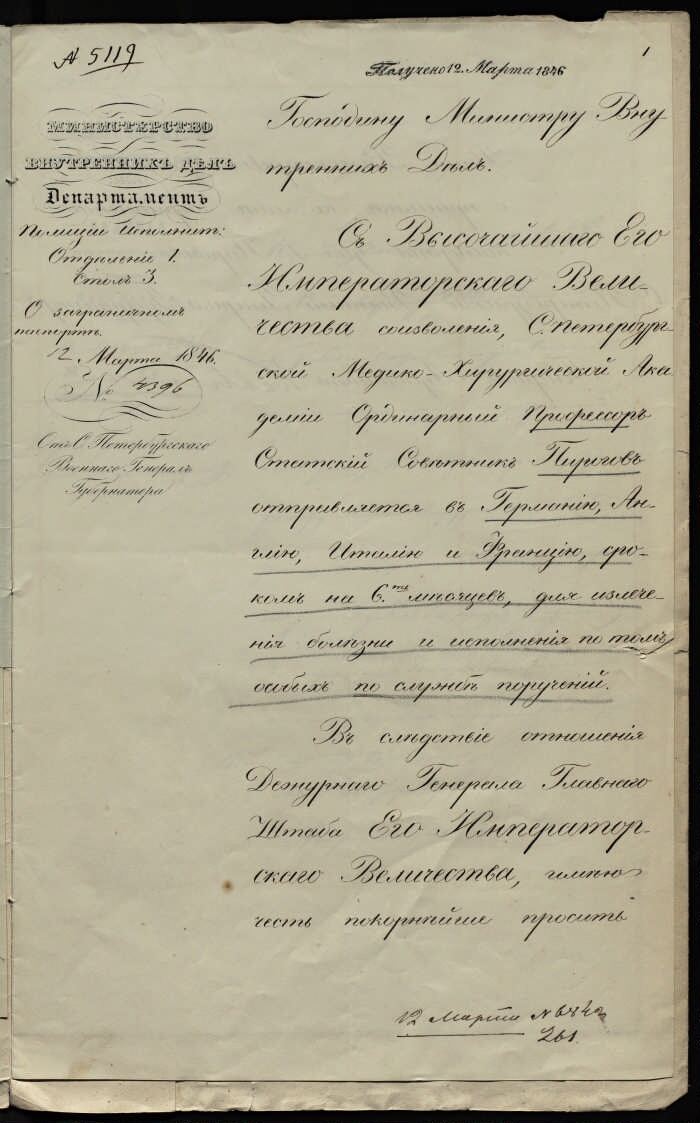 № 5119
Получено 12 Марта 1846
1
МИНИСТЕРСТВО
ВНУТРЕННИХЪ ДѢЛЪ
Департаментъ
Полиціи Исполнит:
Отдѣленіе 1.
Столъ 3.
О заграничномъ
паспортѣ.
12 Марта 1846.
№ 4396
Отъ С. Петербургскаго
Военнаго Генералъ
Губернатора
Господину Министру Вну
треннихъ Дѣлъ.
Съ Высочайшаго Его
Императорскаго Вели-
чества соизволенія, С. петербург-
ской Медико-Хирургической Ака
деміи Ординарный Профессоръ
Статскій Совѣтникъ Пироговъ
отправляется въ Германію, Ан-
глію, Италію и Францію, сро-
комъ на 6.ть мѣсяцевъ, для излече-
нія болѣзни и исполненія по тому
особыхъ по службѣ порученій.
Въ слѣдствіе отношенія
Дежурнаго Генерала Главнаго
Штаба Его Император-
скаго Величества, имѣю
честь покорнѣйше просить
12 Марта №
261.